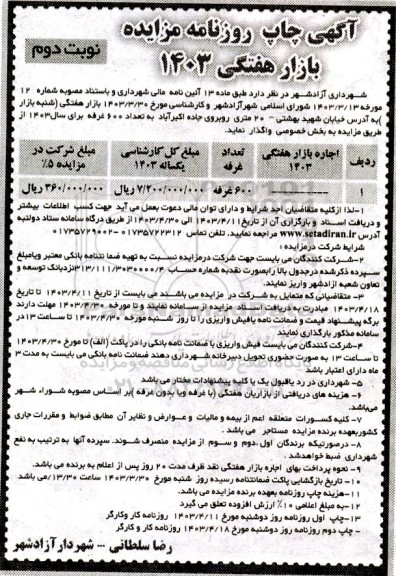 آگهی چاپ روزنامه مزایده
بازار هفتگی ۱۴۰۳
نوبت دوم
شهرداری آزادشهر در نظر دارد طبق ماده ۱۳ آئین نامه مالی شهرداری و باستناد مصوبه شماره ۱۲
مورخه ۱۴۰۳/۳/۱۳ شورای اسلامی شهر آزادشهر و کارشناسی مورخ ۱۴۰۳/۳/۳۰ بازار هفتگی (شنبه بازار
)به آدرس خیابان شهید بهشتی – ۲۰ متری روبروی جاده اکبرآباد به تعداد ۶۰۰ غرفه برای سال۱۴۰۳ از
طریق مزایده به بخش خصوصی واگذار نماید.
ردیف
اجاره بازار هفتگی ۱۴۰۳
تعداد غرفه
مبلغ کل کارشناسی یکساله ۱۴۰۳
مبلغ شرکت در مزایده ۵٪
۱
۶۰۰ غرفه
۷/۲۰۰/۰۰۰/۰۰۰ ریال
۳۶۰/۰۰۰/۰۰۰ ریال
۱-لذا ازکلیه متقاضیان واجد شرایط و دارای توان مالی دعوت بعمل می آید جهت کسب اطلاعات بیشتر
و دریافت اسناد و بارگزاری آن از تاریخ ۱۴۰۳/۴/۱۱ الی ۱۴۰۳/۴/۳۰از طریق درگاه سامانه ستاد دولتبه
آدرس www.setadiran.ir مراجعه نمایید. تلفن تماس ۰۱۷۳۵۷۲۲۳۱۲ – ۰۱۷۳۵۷۲۹۰۰۲
شرایط شرکت درمزایده :
۲–شرکت کنندگان می بایست جهت شرکت درمزایده نسبت به تهیه ضمانتنامه بانکی معتبر ویامبلغ
سپرده ذکرشده درجدول بالا رابصورت نقدبه شماره حساب ۳۱۳/۱۱۱/۳۰۳۰۰۰۰/۴نزدبانک توسعه و
تعاون شعبه ازادشهر واریز نمایند.
۳– متقاضیانی که متمایل به شرکت در مزایده می باشند می بایست از تاریخ ۱۴۰۳/۴/۱۱ تا تاریخ
۱۴۰۳/۴/۱۸ مبادرت به دریافت اسناد مزایده از سامانه نمایند و تا مورخه ۱۴۰۳/۴/۳۰ مهلت دارند
برگه پیشنهاد قیمت و ضمانت نامه یافیش واریزی را تا روز شنبه مورخه ۱۴۰۳/۴/۳۰ تا ساعت ۱۳ در
سامانه مذکور بارگذاری نمایند
۴–شرکت کنندگان می بایست فیش واریزی یا ضمانت نامه بانکی را در پاکت (الف) تا مورخ ۱۴۰۳/۴/۳۰
تا ساعت ۱۳ به صورت حضوری تحویل دبیرخانه شهرداری دهند ضمانت نامه بانکی می بایست به مدت ۳
ماه دارای اعتبار باشد
۵– شهرداری در رد یاقبول یک یا کلیه پیشنهادات مختار می باشد
۶– هزینه های دریافتی از بازاریان هفتگی (با غرفه و یا بدون غرفه )بر اساس مصوبه شوراء شهر
می‌باشد.
۷–کلیه کسورات متعلقه اعم از بیمه و مالیات و عوارض و نظایر آن مطابق ضوابط و مقررات جاری
کشوربعهده برنده مزایده مستاجر می باشد .
۸– درصورتیکه برندگان اول ،دوم و سوم از مزایده منصرف شوند. سپرده آنها به ترتیب به نفع
شهرداری ضبط خواهدشد .
۹– نحوه پرداخت بهای اجاره بازار هفتگی نقد ظرف مدت ۲۰ روز پس از اعلام به برنده می باشد.
۱۰– تاریخ بازگشایی پاکت ضمانتنامه رسیده روز شنبه مورخ ۱۴۰۳/۳/۳۰ ساعت ۱۳/۳۰می باشد
۱۱–هزینه چاپ روزنامه بعهده برنده مزایده می باشد.
۱۲–به مبلغ اعلامی ۱۰٪ ارزش افزوده تعلق می گیرد
۱۳–چاپ اول روزنامه روز دوشنبه مورخ ۱۴۰۳/۴/۱۱ روزنامه کار وکارگر
– چاپ دوم روزنامه روز دوشنبه مورخ ۱۴۰۳/۴/۱۸ روزنامه کار و کارگر
رضا سلطانی --- شهردارآزادشهر